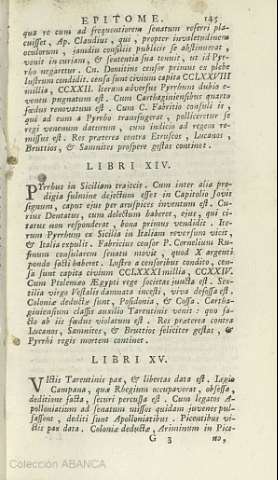 EPITOME. 145
qua re cum ad frequentiorem senatum referri pla-
cuisset, Ap. Claudius, qui, propter invaletudinem
oculorum, jamdiu consiliis publicis se abstinuerat,
venit in curiam, & sententia sua tenuit, ut id Pyr-
rho negaretur. Cn. Domitius censor primus ex plebe
lustrum condidit. censa sunt civium capita CCLXXVIII
millia, CCXXII. Iterum adversus Pyrrhum dubio e-
ventu pugnatum est. Cum Carthaginiensibus quarto
fœdus renovatum est. Cum C. Fabricio consuli is,
qui ad eum a Pyrrho transfugerat, polliceretur se
regi venenum daturum, cum indicio ad regem re-
missus est. Res præterea contra Etruscos, Lucanos,
Bruttios, & Samnites prospere gestas continet.
LIBRI XIV.
PYrrhus in Siciliam trajecit. Cum inter alia pro-
digia fulmine dejectum esset in Capitolio Jovis
signum, caput ejus per aruspices inventum est. Cu-
rius Dentatus, cum delectum haberet, ejus, qui ci-
tatus non responderat, bona primus vendidit. Ite-
rum Pyrrhum ex Sicilia in Italiam reversum vicit,
& Italia expulit. Fabricius censor P. Cornelium Ru-
finum consularem senatu movit, quod X argenti
pondo facti haberet. Lustro a censoribus condito, cen-
sa sunt capita civium CCLXXXI millia, CCXXIV.
Cum Ptolemæo Ægypti rege societas juncta est. Sex-
tilia virgo Vestalis damnata incesti, viva defossa est.
Coloniæ deductæ sunt, Posidonia, & Cossa. Cartha-
giniensium classis auxilio Tarentinis venit: quo fa-
cto ab iis fœdus violatum est. Res præterea contra
Lucanos, Samnites, & Bruttios feliciter gestas, &
Pyrrhi regis mortem continet.
LIBRI XV.
VIctis Tarentinis pax, & libertas data est. Legio
Campana, quæ Rhegium occupaverat, obsessa,
deditione facta, securi percussa est. Cum legatos A-
polloniatium ad senatum missos quidam juvenes pul-
sassent, dediti sunt Apolloniatibus. Picentibus vi-
ctis pax data. Coloniæ deductæ, Ariminum in Pice-
G 3 no,
Colección ABANCA